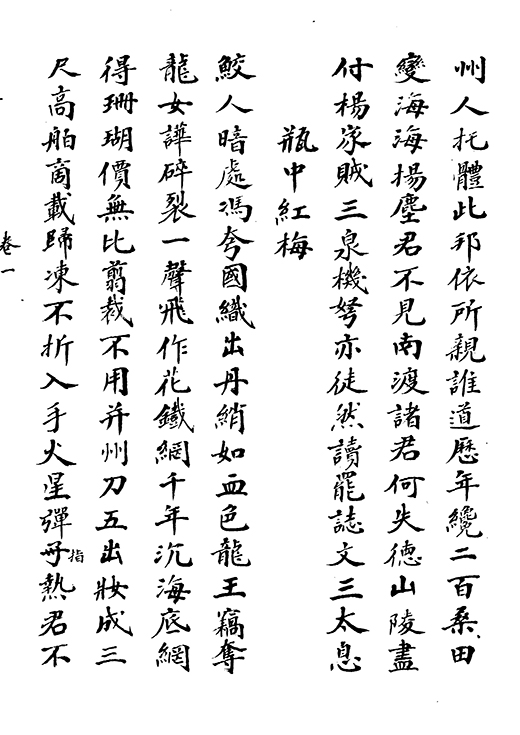 州人托體此邦依所親誰道歷年纔二百桑田
變海海楊塵君不見南渡諸君何失德山陵盡
付楊家賊三泉機弩亦徒然讀罷誌文三太息
瓶中紅梅
鮫人暗處馮夸國織出丹綃如血色龍王竊奪
龍女譁碎裂一聲飛作花鐵網千年沉海底網
得珊瑚價無比翦裁不用并州刀五出妝成三
尺高舶商載歸凍不折入手火星彈指熱君不
卷一